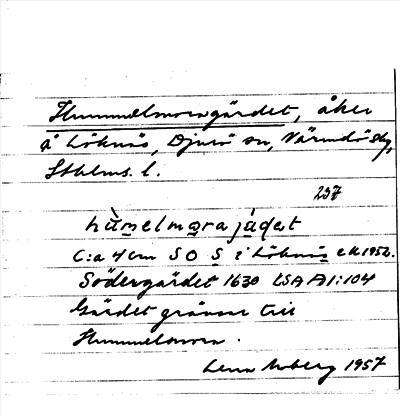 Hummelmoragärdet, åker
å Löknäs, Djurö sn, Värmdö skg,
Sthlms. l.
237
hùmelmωrajádət
C:a 4 cm S O S i Löknäs ek 1952.
Södergärdet 1630 LSA A1:104
Gärdet gränsar till
Hummelmora.
Lena Moberg 1957